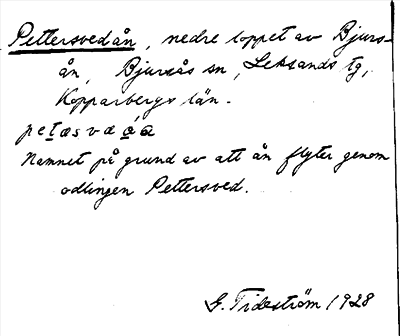 Pettersvedån, nedre loppet av Bjurs-
ån, Bjursås sn, Leksands tg,
Kopparbergs län.
Namnet på grund av att ån flyter genom
odlingen Pettersved.
G. Tideström 1928